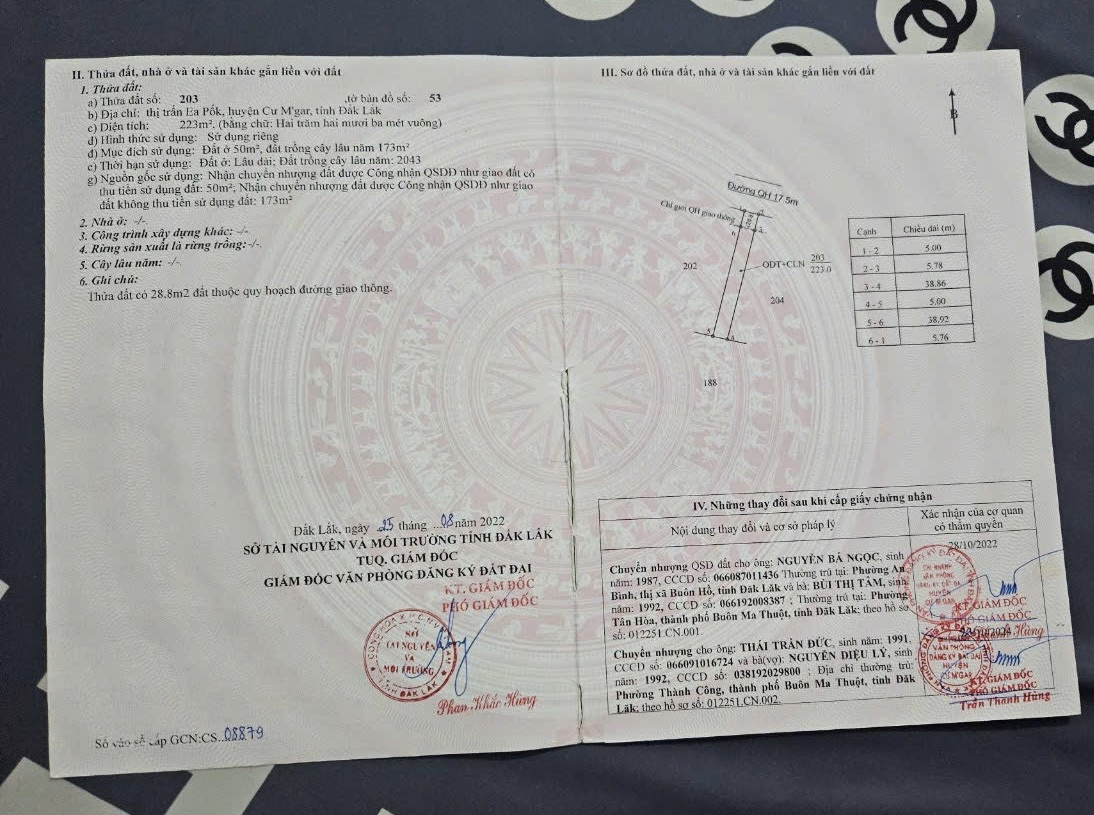 II. Thửa đất, nhà ở và tài sản khác gắn liền với đất
1. Thửa đất:
a) Thửa đất số: 203 ,tờ bản đồ số: 53
b) Địa chỉ: thị trấn Ea Pốk, huyện Cư M'gar, tỉnh Đắk Lắk
c) Diện tích: 223m². (bằng chữ: Hai trăm hai mươi ba mét vuông)
d) Hình thức sử dụng: Sử dụng riêng
đ) Mục đích sử dụng: Đất ở 50m², đất trồng cây lâu năm 173m²
e) Thời hạn sử dụng: Đất ở: Lâu dài; Đất trồng cây lâu năm: 2043
g) Nguồn gốc sử dụng: Nhận chuyển nhượng đất được Công nhận QSDĐ như giao đất có
thu tiền sử dụng đất: 50m²; Nhận chuyển nhượng đất được Công nhận QSDĐ như giao
đất không thu tiền sử dụng đất: 173m²
2. Nhà ở: -/-
3. Công trình xây dựng khác: -/-
4. Rừng sản xuất là rừng trồng:-/-.
5. Cây lâu năm: -/-
6. Ghi chú:
Thửa đất có 28.8m2 đất thuộc quy hoạch đường giao thông.
Đắk Lắk, ngày 25 tháng ..08 năm 2022
SỞ TÀI NGUYÊN VÀ MÔI TRƯỜNG TỈNH ĐẮK LẮK
TUQ. GIÁM ĐỐC
GIÁM ĐỐC VĂN PHÒNG ĐĂNG KÝ ĐẤT ĐAI
KT. GIÁM ĐỐC
PHÓ GIÁM ĐỐC
SỞ
TÀI NGUYÊN
VÀ
MÔI TRƯỜNG
TỈNH ĐẮK LẮK
Phan Khắc Hùng
Số vào sổ cấp GCN:CS..08879
III. Sơ đồ thửa đất, nhà ở và tài sản khác gắn liền với đất
B
Đường QH 17.5m
Chỉ giới QH giao thông
1 2
6 3
202
ODT+CLN 203
223.0
204
5 4
188
Cạnh Chiều dài (m)
1 - 2 5.00
2 - 3 5.78
3 - 4 38.86
4 - 5 5.00
5 - 6 38.92
6 - 1 5.76
IV. Những thay đổi sau khi cấp giấy chứng nhận
Nội dung thay đổi và cơ sở pháp lý
Xác nhận của cơ quan
có thẩm quyền
28/10/2022
Chuyển nhượng QSD đất cho ông: NGUYỄN BÁ NGỌC, sinh
năm: 1987, CCCD số: 066087011436 Thường trú tại: Phường An
Bình, thị xã Buôn Hồ, tỉnh Đắk Lắk và bà: BÙI THỊ TÂM, sinh
năm: 1992, CCCD số: 066192008387 ; Thường trú tại: Phường
Tân Hòa, thành phố Buôn Ma Thuột, tỉnh Đắk Lắk; theo hồ sơ
số: 012251.CN.001.
CHI NHÁNH
VĂN PHÒNG
ĐĂNG KÝ ĐẤT ĐAI
HUYỆN
CƯ M'GAR
KT. GIÁM ĐỐC
PHÓ GIÁM ĐỐC
Chuyển nhượng cho ông: THÁI TRẦN ĐỨC, sinh năm: 1991,
CCCD số: 066091016724 và bà(vợ): NGUYỄN DIỆU LÝ, sinh
năm: 1992, CCCD số: 038192029800 ; Địa chỉ thường trú:
Phường Thành Công, thành phố Buôn Ma Thuột, tỉnh Đắk
Lắk; theo hồ sơ số: 012251.CN.002.
VĂN PHÒNG
ĐĂNG KÝ ĐẤT ĐAI
HUYỆN
CƯ M'GAR
KT. GIÁM ĐỐC
PHÓ GIÁM ĐỐC
Trần Thanh Hùng